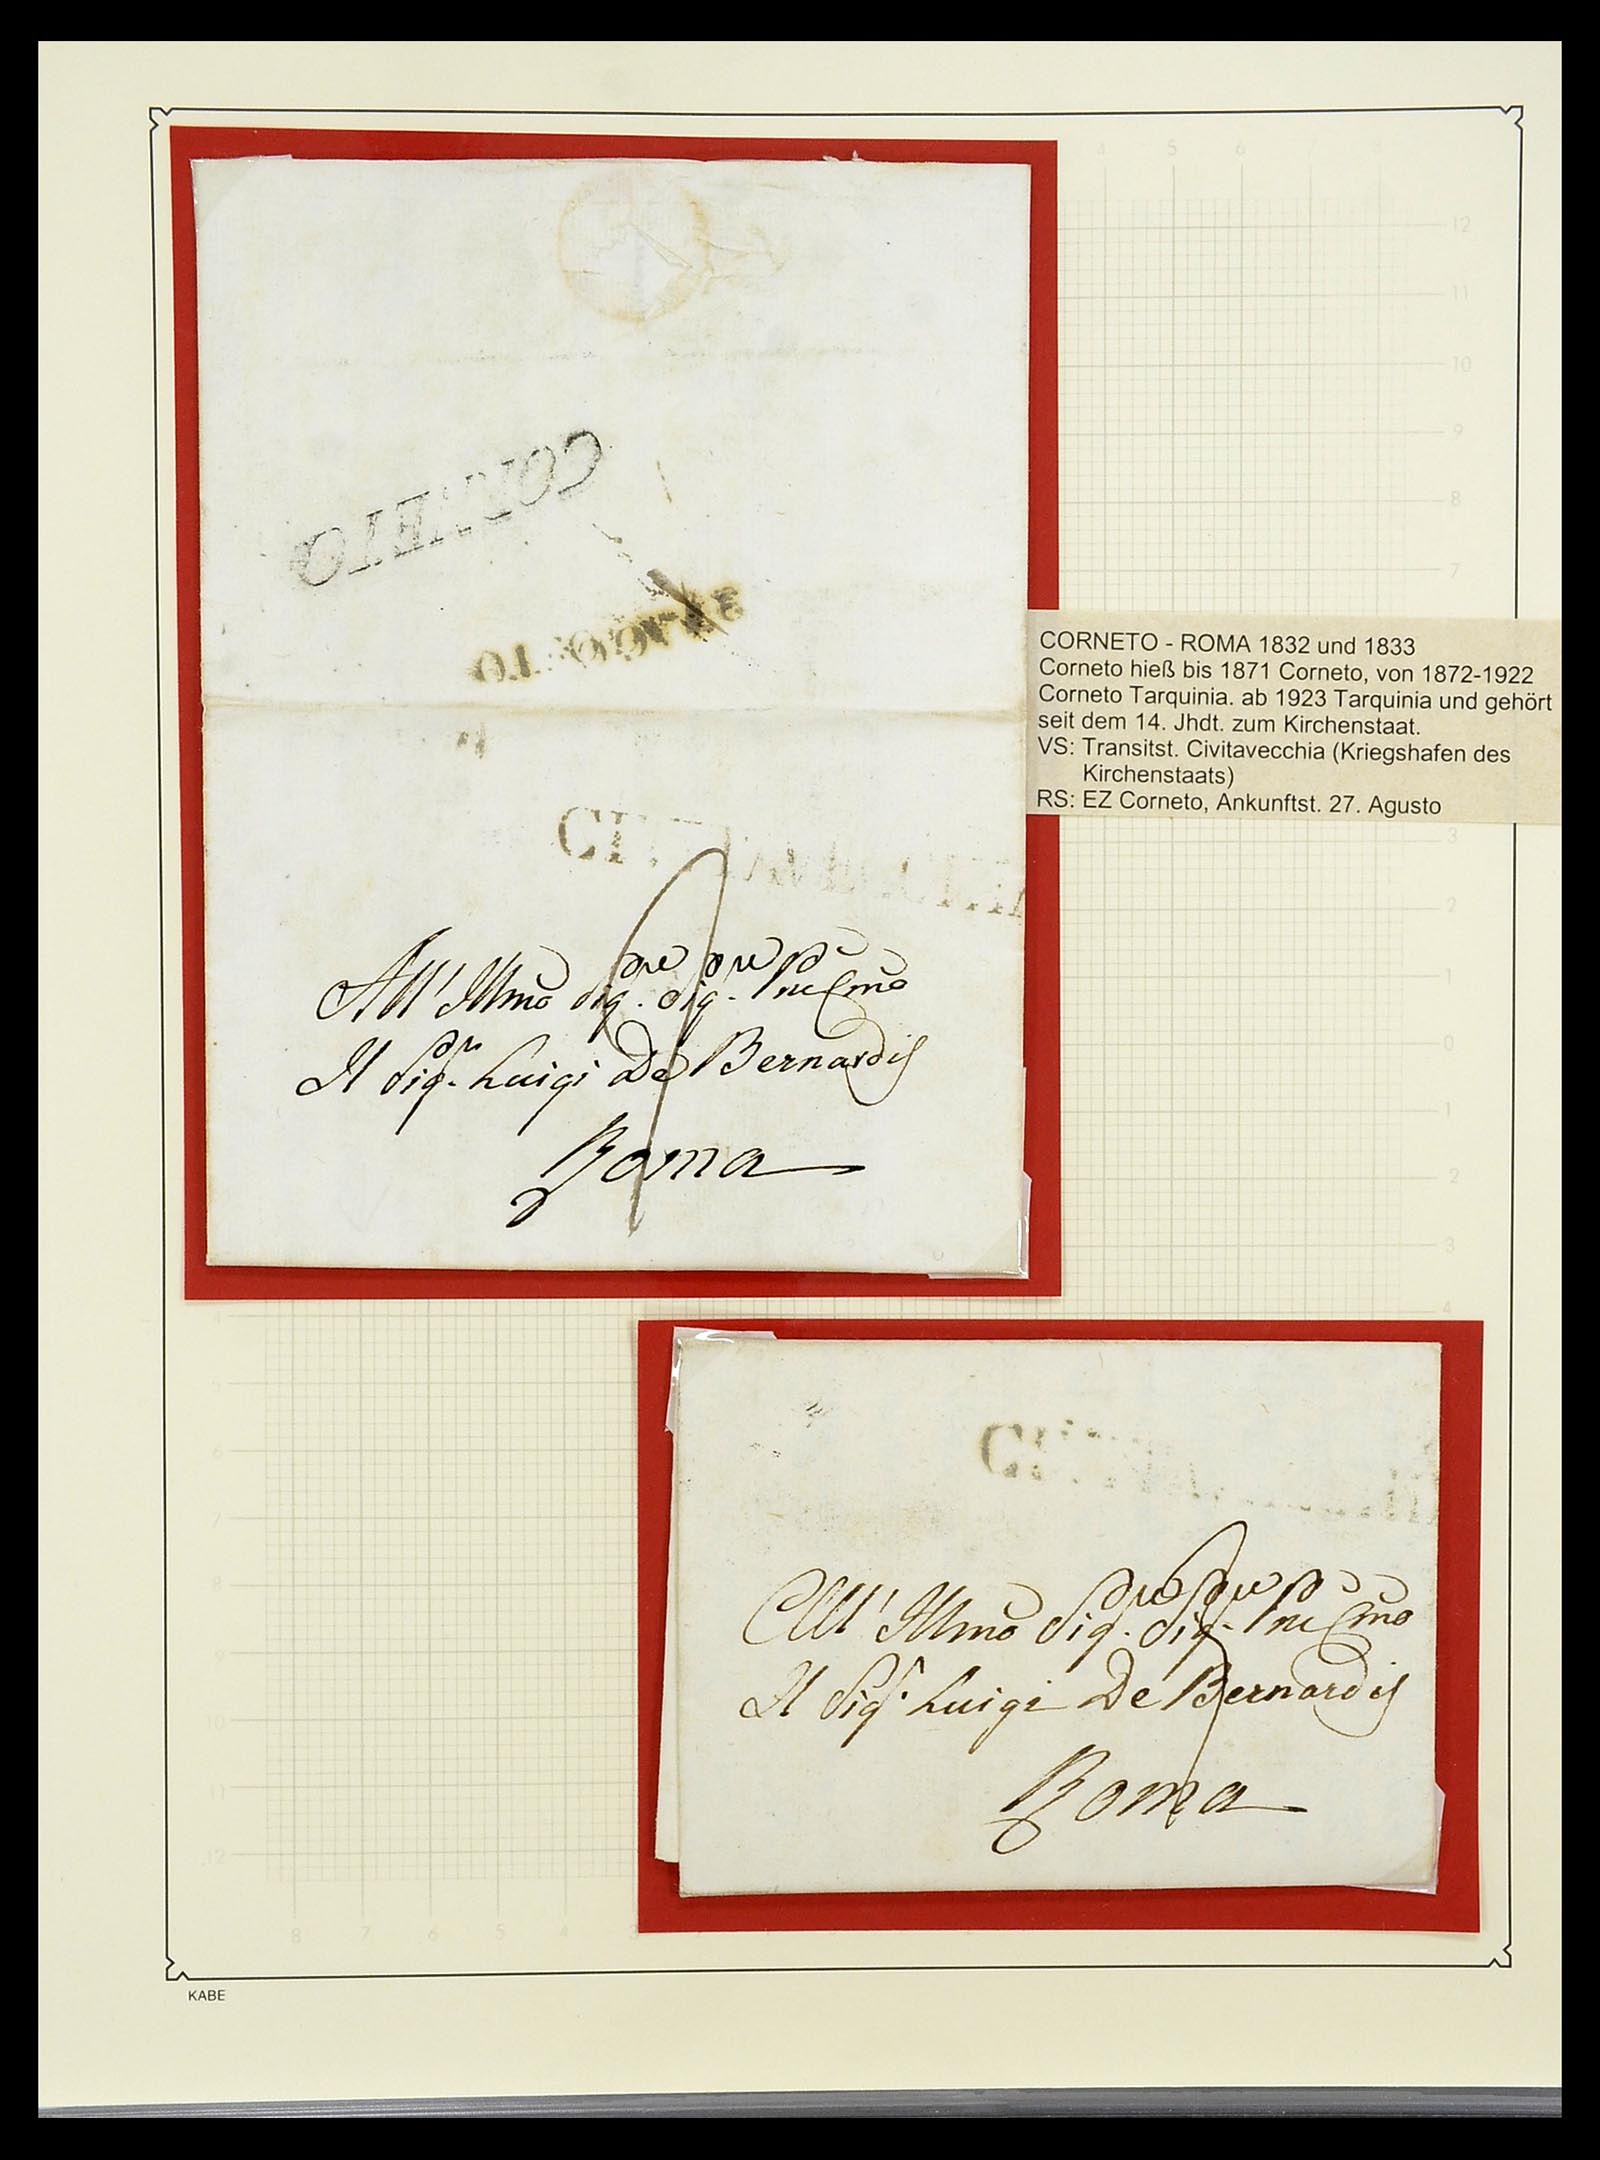 CORNETO
CORNETO - ROMA 1832 und 1833
Corneto hieß bis 1871 Corneto, von 1872-1922
Corneto Tarquinia. ab 1923 Tarquinia und gehört
seit dem 14. Jhdt. zum Kirchenstaat.
VS: Transitst. Civitavecchia (Kriegshafen des
Kirchenstaats)
RS: EZ Corneto, Ankunftst. 27. Agusto
All' Illmo Sig.re Sig.re
Il Sig.r Luigi De Bernardis
Roma
All' Illmo Sig.re Sig.re
Il Sig.r Luigi De Bernardis
Roma
KABE